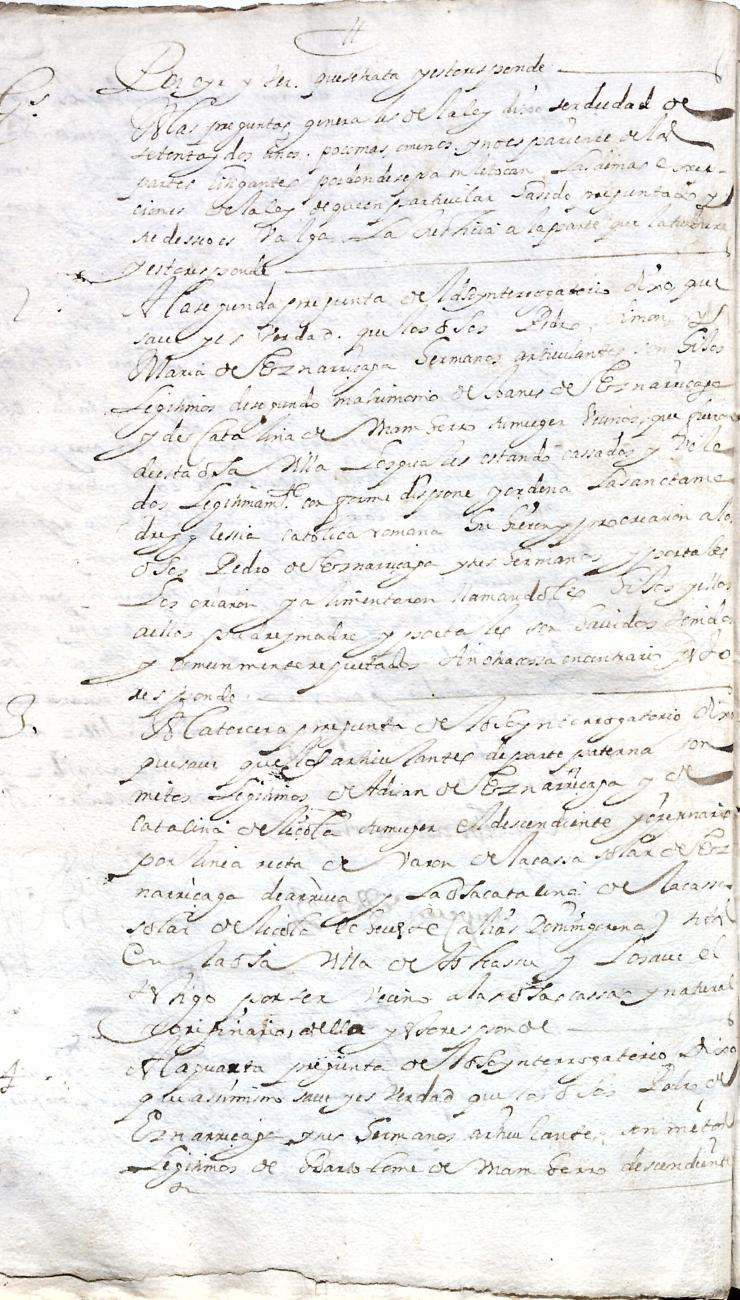 Por oyr y ver. que se trata y esto responde
Gs. A las preguntas generales de la ley dixo ser de edad de
setenta y dos años. poco mas o menos, y no es pariente de las
partes litigantes por donde se pa le tocan las demas
ciones de la ley de que en particular ha sido preguntado y
su desseo es valga la Justicia a la parte que la tuviere
y esto responde
2 A la segunda pregunta del dho ynterrogatorio dixo, que
save y es verdad. que los dhos Pedro, Simon, y
Maria de Eznarriçaga hermanos articulantes son hijos
legitimos de segundo matrimonio de Joanes de Eznarriçaga
y de Catalina de Mamberro su muger vecinos que fueron
de esta dha Villa los quales estando cassados y vela
dos legitimamte. conforme dispone y ordena la sancta me
dre yglessia catolica romana hubieron y procrearon a los
dhos Pedro de Eznarriçaga y sus hermanos y por tales
los criaron y alimentaron llamandoles hijos y ellos
a ellos padre y madre y por tales son havidos tenidos
y comunmente reputados sin otra cossa en contrario y esto
responde
3. A la tercera pregunta del dho ynterrogatorio dixo
que save que los articulantes de parte paterna son
nietos legitimos de Adrian de Eznarriçaga y de
Catalina de licola su muger el descendiente y originario
por linea recta de varon de la cassa solar de Ez
narriçaga de arriva y la dha catalina de la cassa
solar de licola (alias Dominguena)
en la dha Villa de y lo save el
testigo por ser vecino a las dhas cassas y natural
originario, de ella y esto responde
4 A la quarta pregunta del dho ynterrogatorio dixo
que asimismo save y es verdad que los dhos Pedro de
Eznarriçaga y sus hermanos articulantes, son nietos
legitimos de Bartolome de Mamberro descendiente